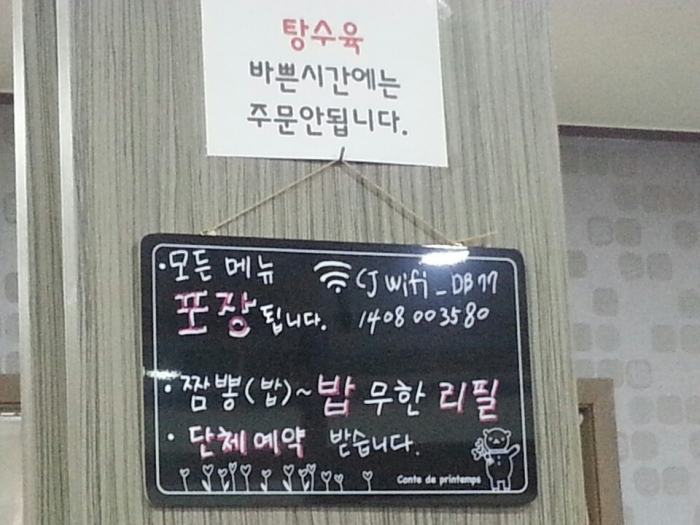 탕수육
바쁜시간에는
주문안됩니다.
·모든 메뉴
포장 됩니다.
CJ wifi_DB77
1408003580
·짬뽕(밥)~밥 무한 리필
·단체예약 받습니다.
Conte de printemps